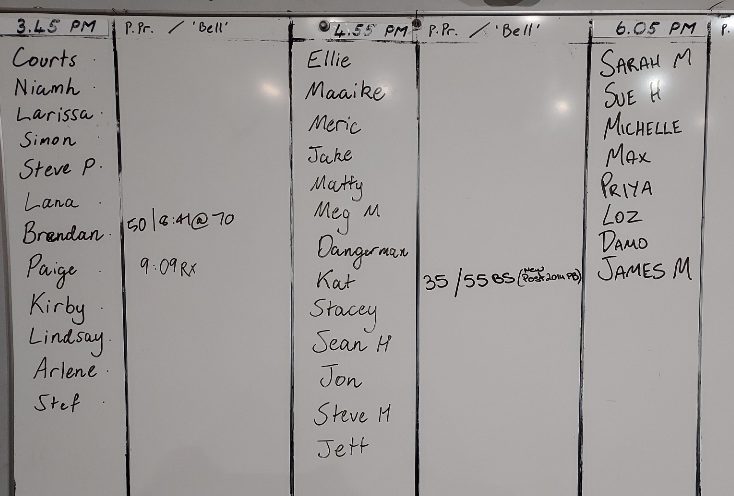 3.45 PM
P.Pr. / 'Bell'
Courts
Niamh
Larissa
Simon
Steve P.
Lana
Brendan 50/8:41@70
Paige 9:09 Rx
Kirby
Lindsay
Arlene
Stef
4.55 PM
P.Pr. / 'Bell'
Ellie
Maaike
Meric
Jake
Matty
Meg M
Dangerman
Kat 35/55 BS (New Post 20th PB)
Stacey
Sean H
Jon
Steve H
Jett
6.05 PM
P.
SARAH M
SUE H
MICHELLE
MAX
PRIYA
LOZ
DAMO
JAMES M